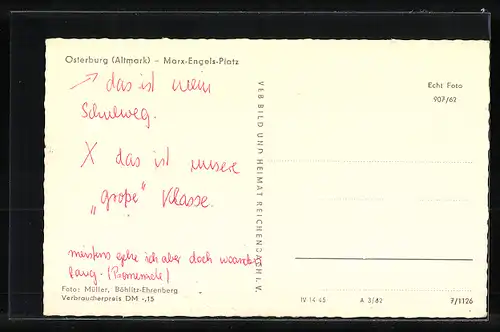 Osterburg (Altmark) – Marx-Engels-Platz
→ das ist mein
Schulweg.
X das ist unsere
„große" Klasse.
meistens gehe ich aber doch woanders
lang. (Promenade)
Foto: Müller, Böhlitz-Ehrenberg
Verbraucherpreis DM -,15
VEB BILD UND HEIMAT REICHENBACH I. V.
Echt Foto
907/62
IV-14-45 A 3/62 7/1126